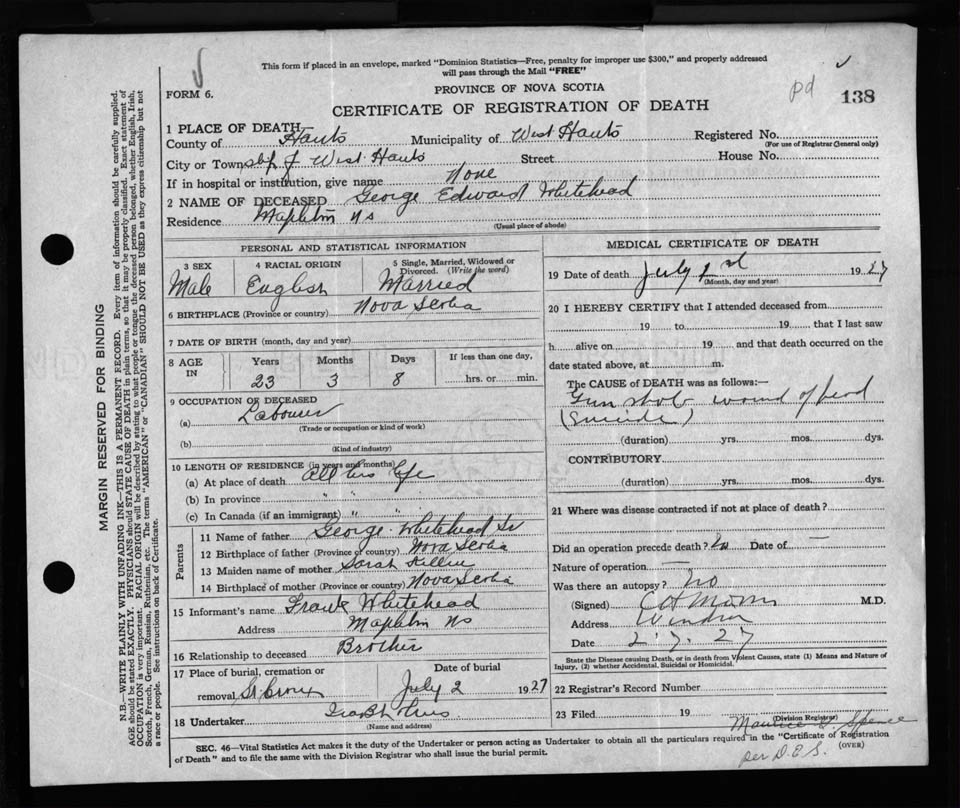 This form if placed in an envelope, marked "Dominion Statistics—Free, penalty for improper use $300," and properly addressed
will pass through the Mail "FREE"
pd
FORM 6.
PROVINCE OF NOVA SCOTIA
138
CERTIFICATE OF REGISTRATION OF DEATH
1 PLACE OF DEATH
County of Hants Municipality of West Hants Registered No.
(For use of Registrar General only)
City or Town of West Hants Street House No.
If in hospital or institution, give name None
2 NAME OF DECEASED George Edward Whitehead
Residence Mapleton NS
(Usual place of abode)
PERSONAL AND STATISTICAL INFORMATION
3 SEX
Male
4 RACIAL ORIGIN
English
5 Single, Married, Widowed or
Divorced. (Write the word)
Married
6 BIRTHPLACE (Province or country) Nova Scotia
7 DATE OF BIRTH (month, day and year)
8 AGE
IN
Years Months Days If less than one day,
23 3 8 hrs. or min.
9 OCCUPATION OF DECEASED
(a) Labourer
(Trade or occupation or kind of work)
(b)
(Kind of industry)
10 LENGTH OF RESIDENCE (in years and months)
(a) At place of death All his life
(b) In province " "
(c) In Canada (if an immigrant) " "
Parents
11 Name of father George Whitehead Sr
12 Birthplace of father (Province or country) Nova Scotia
13 Maiden name of mother Sarah
14 Birthplace of mother (Province or country) Nova Scotia
15 Informant's name Frank Whitehead
Address Mapleton NS
16 Relationship to deceased Brother
17 Place of burial, cremation or Date of burial
removal St Croix July 2 1927
18 Undertaker
(Name and address)
MEDICAL CERTIFICATE OF DEATH
19 Date of death July 1st 1927
(Month, day and year)
20 I HEREBY CERTIFY that I attended deceased from
19 to 19 that I last saw
h alive on 19 and that death occurred on the
date stated above, at m.
The CAUSE of DEATH was as follows:—
Gun shot wound of head
(Suicide)
(duration) yrs. mos. dys.
CONTRIBUTORY
(duration) yrs. mos. dys.
21 Where was disease contracted if not at place of death?
Did an operation precede death? No Date of —
Nature of operation —
Was there an autopsy? No
(Signed) M.D.
Address Windsor
Date 2.7.27
State the Disease causing Death, or in death from Violent Causes, state (1) Means and Nature of
Injury, (2) whether Accidental, Suicidal or Homicidal.
22 Registrar's Record Number
23 Filed 19
(Division Registrar)
Maurice Spence
per D.E.S.
SEC. 46—Vital Statistics Act makes it the duty of the Undertaker or person acting as Undertaker to obtain all the particulars required in the "Certificate of Registration
of Death" and to file the same with the Division Registrar who shall issue the burial permit.
(OVER)
MARGIN RESERVED FOR BINDING
N.B.—WRITE PLAINLY WITH UNFADING INK—THIS IS A PERMANENT RECORD. Every item of information should be carefully supplied.
AGE should be stated EXACTLY. PHYSICIANS should STATE CAUSE OF DEATH in plain terms, so that it may be properly classified. Exact statement of
OCCUPATION is very important. RACIAL ORIGIN will be described by stating to what people or tongue the deceased person belonged, whether English, Irish,
Scotch, French, German, Russian, Ruthenian, etc. The terms "AMERICAN" or "CANADIAN" SHOULD NOT BE USED as they express citizenship but not
a race or people. See instructions on back of Certificate.